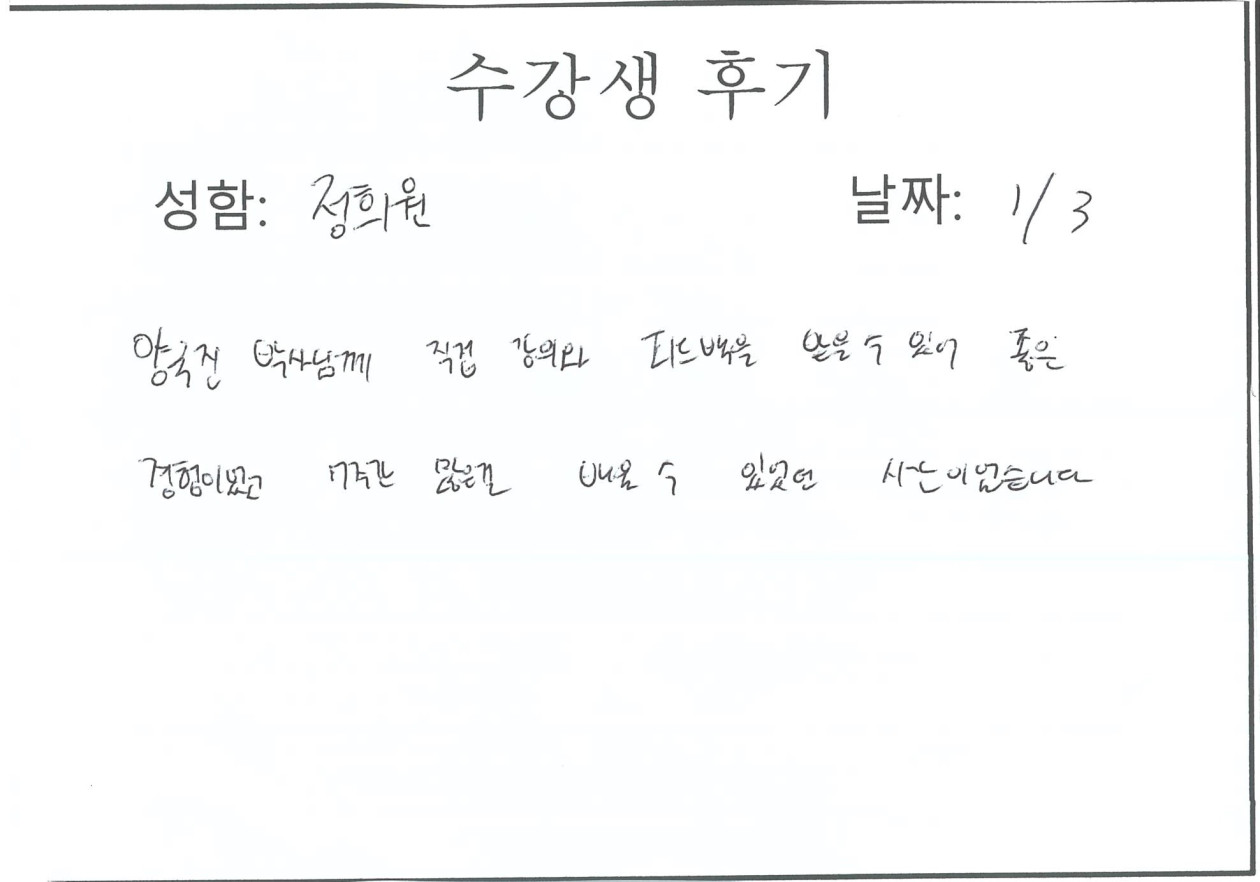 수강생 후기
성함: 정희원 날짜: 1/3
양욱진 박사님께 직접 강의와 피드백을 받을 수 있어 좋은
경험이였고 7주간 많은걸 배울 수 있었던 시간이었습니다